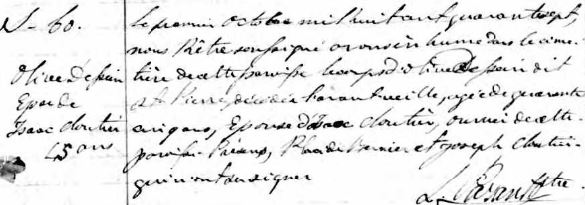 S- 60.
Olive Dessein
Epse de
Isaac Cloutier
45 ans
Le premier Octobre mil huit cent quarante sept,
nous Prêtre soussigné avons inhumé dans le cime-
tière de cette paroisse le corps d'Olive Dessein dit
St Pierre, décédée l'avant veille, agée de quarante
cinq ans, Epouse d'Isaac Cloutier, ouvrier de cette
paroisse. Présens, Bernier et Joseph Clouti-
qui n'ont su signer
Ptre